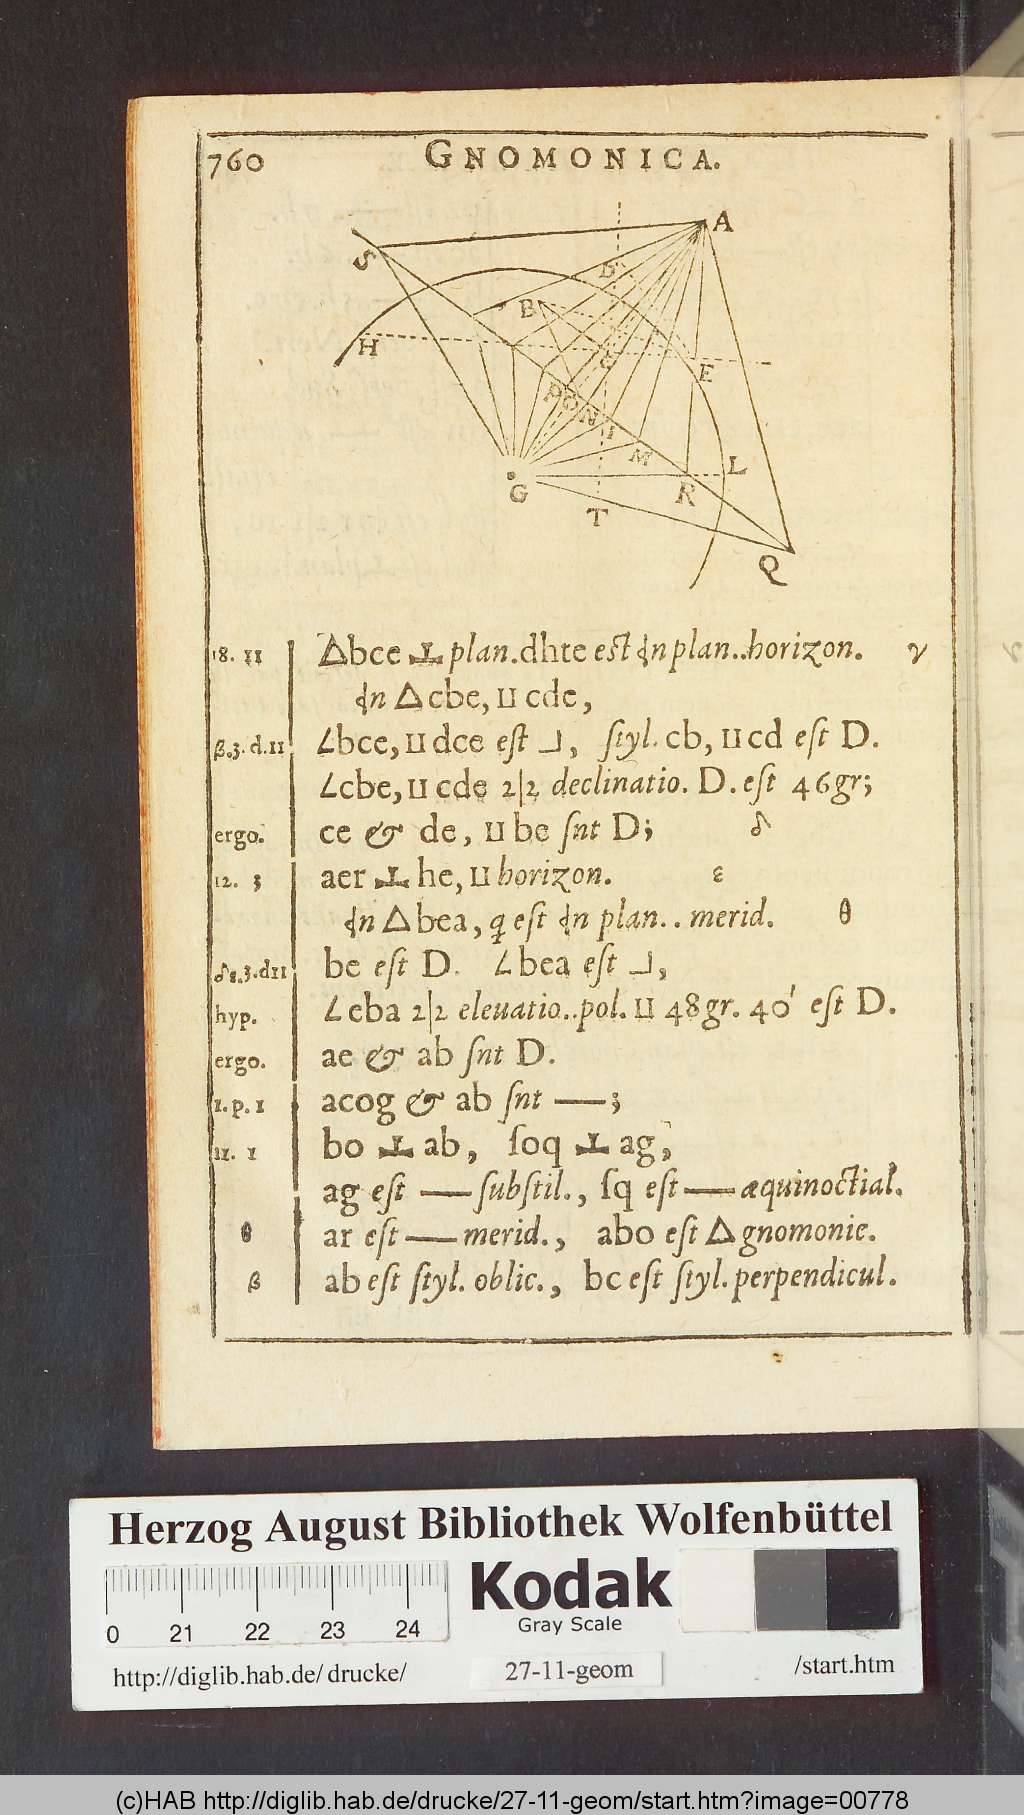 760 GNOMONICA.
A
S
D
B
H
C
E
P O N I
M
L
G
R
T
Q
18. 11 △bce ⊥ plan. dhte est in plan..horizon. γ
in △ cbe, ıı cde,
β.3. d.11 ∠bce, ıı dce est ⅃, styl. cb, ıı cd est D.
∠cbe, ıı cde 2|2 declinatio. D. est 46gr;
ergo. ce & de, ıı be snt D; δ
12. 3 aer ⊥ he, ıı horizon. ε
in △ bea, q est in plan.. merid. θ
δ.3.d11 be est D. ∠bea est ⅃,
hyp. ∠eba 2|2 eleuatio..pol. ıı 48gr. 40' est D.
ergo. ae & ab snt D.
1.p.1 acog & ab snt —;
11. 1 bo ⊥ ab, ſoq ⊥ ag,
ag est — substil., ſq est — æquinoctial.
θ ar est — merid., abo est △ gnomonic.
β ab est styl. oblic., bc est styl. perpendicul.
Herzog August Bibliothek Wolfenbüttel
0 21 22 23 24
Kodak
Gray Scale
http://diglib.hab.de/ drucke/ 27-11-geom /start.htm
(c)HAB http://diglib.hab.de/drucke/27-11-geom/start.htm?image=00778